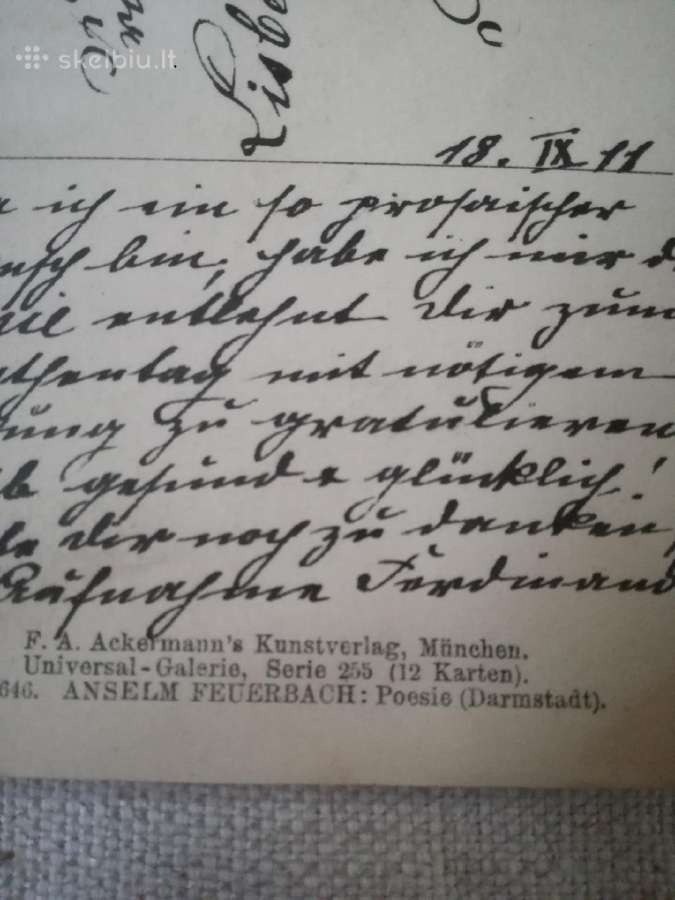 skelbiu.lt
Lisbe
18. IX 11
ich ein so prosaischer
ensch bin, habe ich mir d
entlehnt Dir zum
athentag mit nötigem
ung zu gratulieren
b gesund & glücklich!
le Dir noch zu danken,
Aufnahme Ferdinand
F. A. Ackermann's Kunstverlag, München.
Universal-Galerie, Serie 255 (12 Karten).
646. ANSELM FEUERBACH: Poesie (Darmstadt).